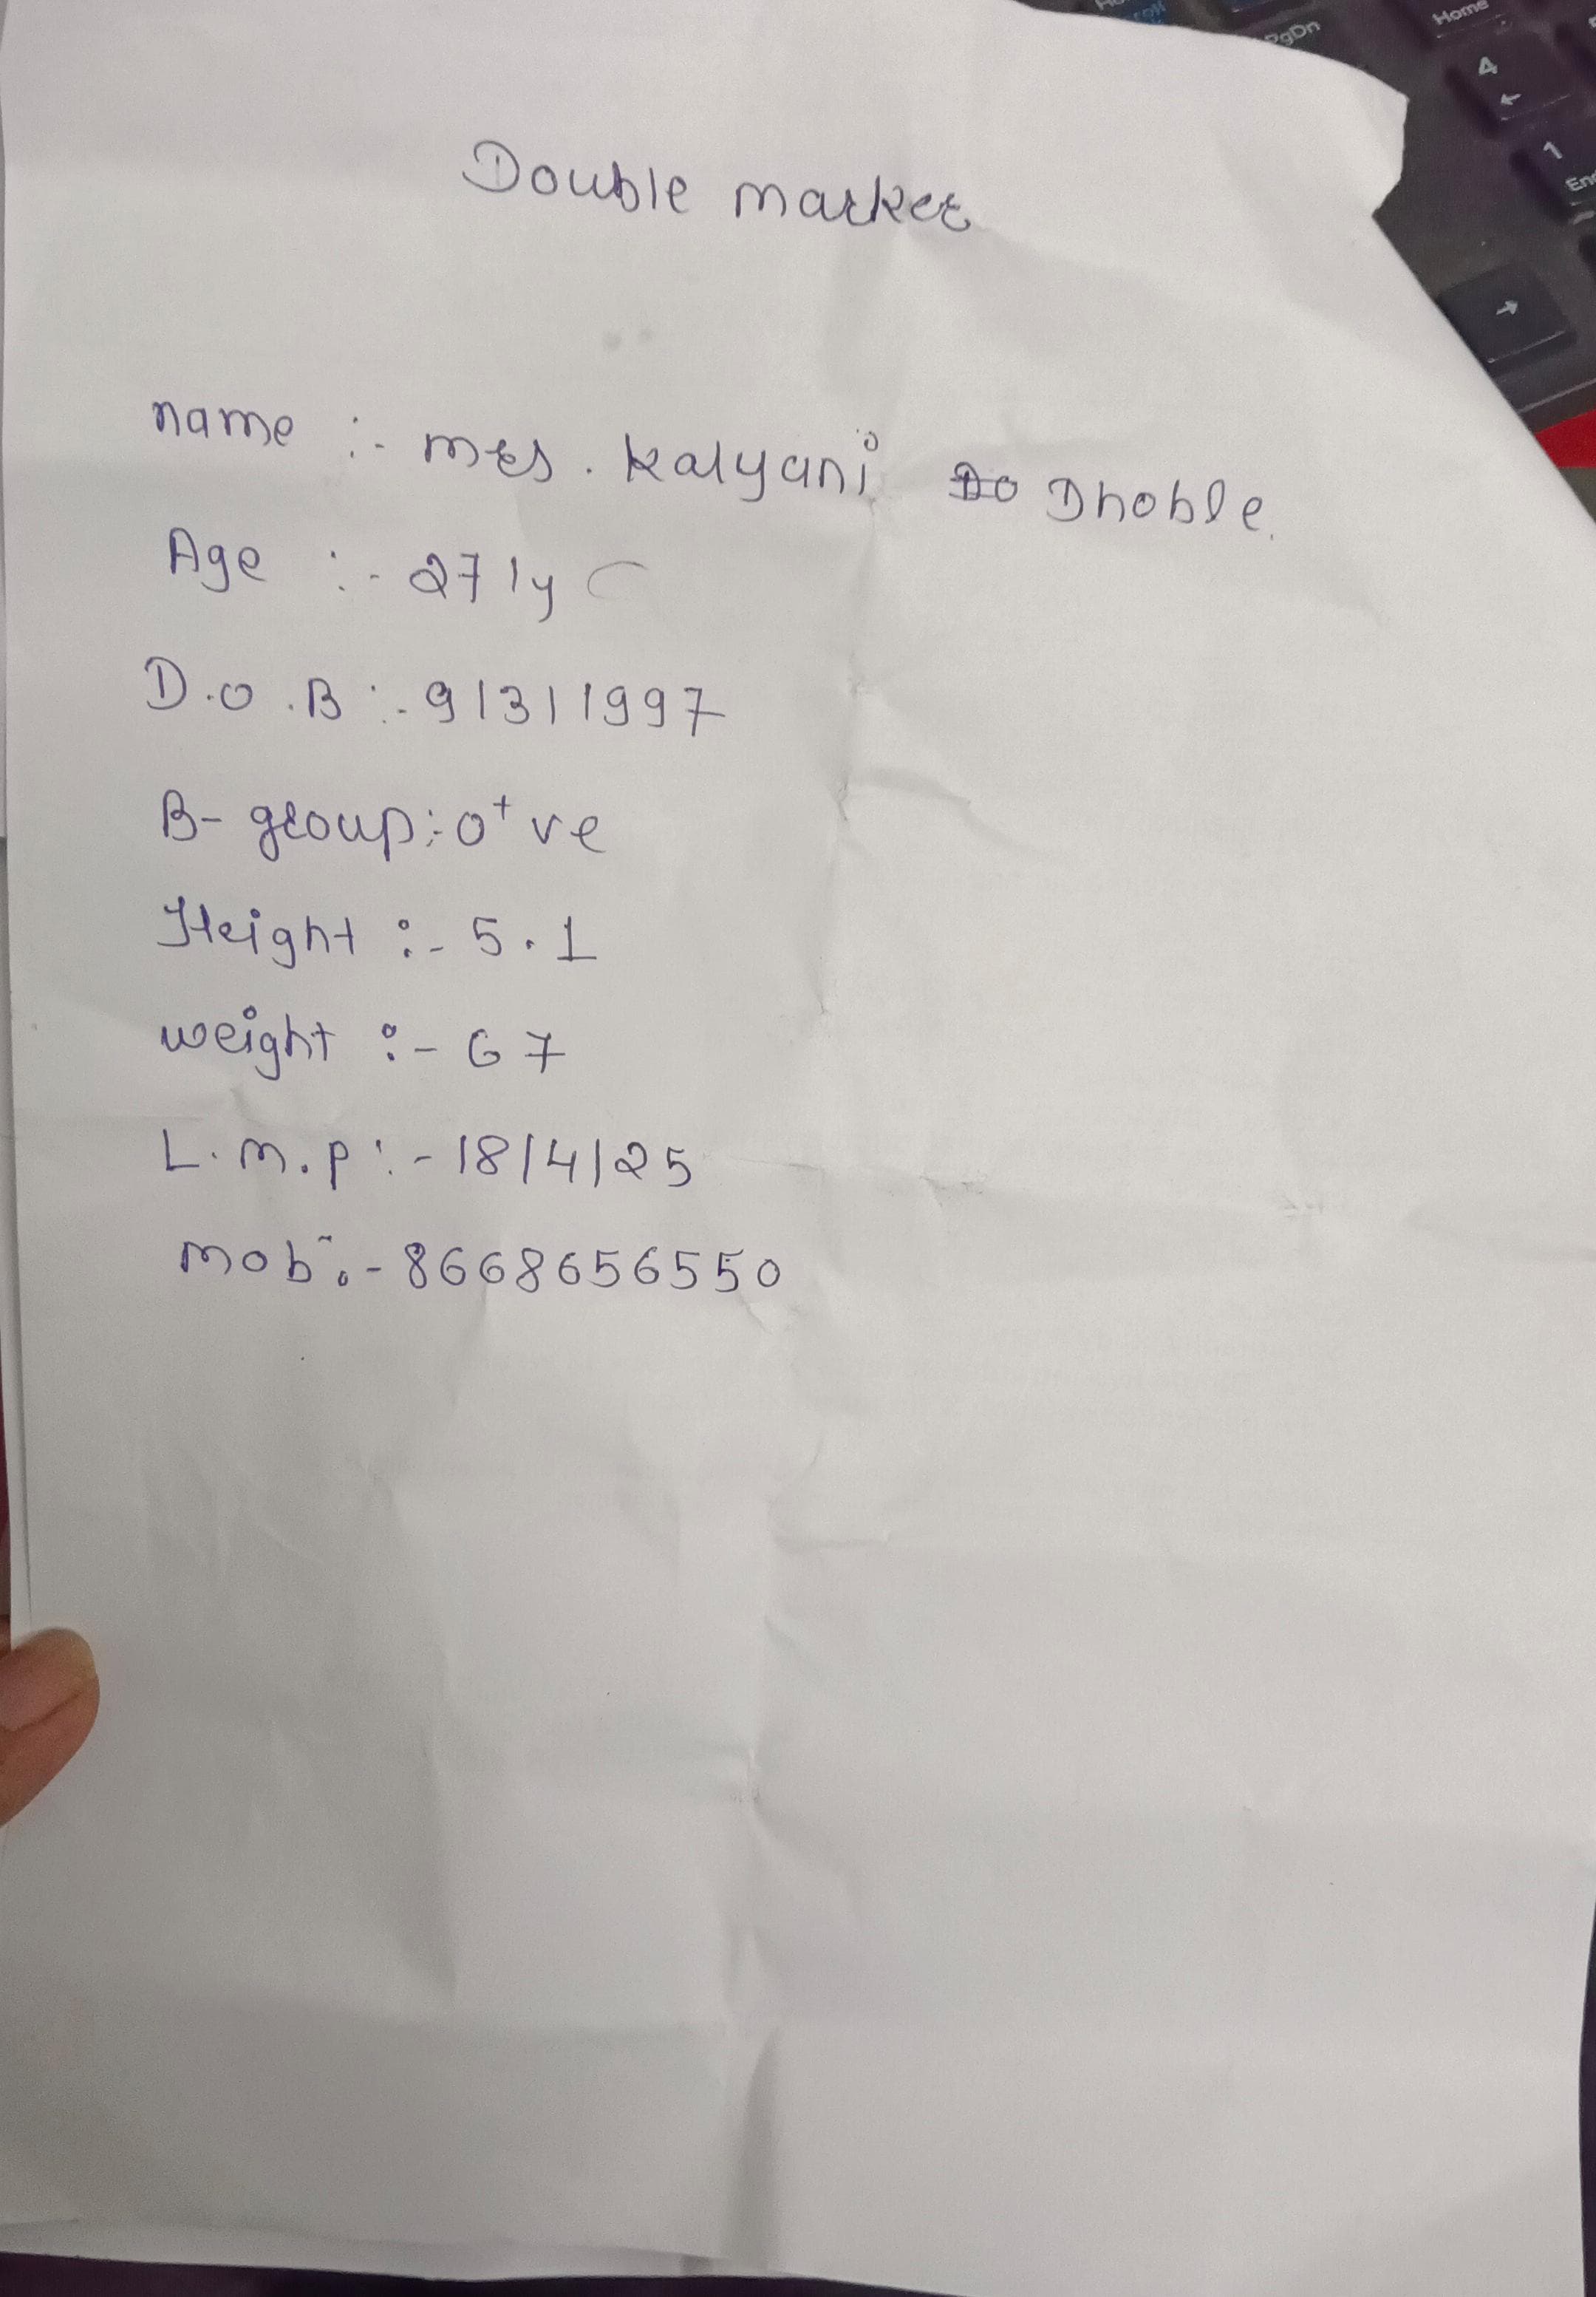 Double marker
name :- mrs. Kalyani Do Dhoble.
Age :- 27/y
D.O.B :- 9/3/1997
B-group:- O+ve
Height :- 5.1
weight :- 67
L.m.p :- 18/4/25
mob :- 8668656550
PgDn
Home
4
←
1
End
→